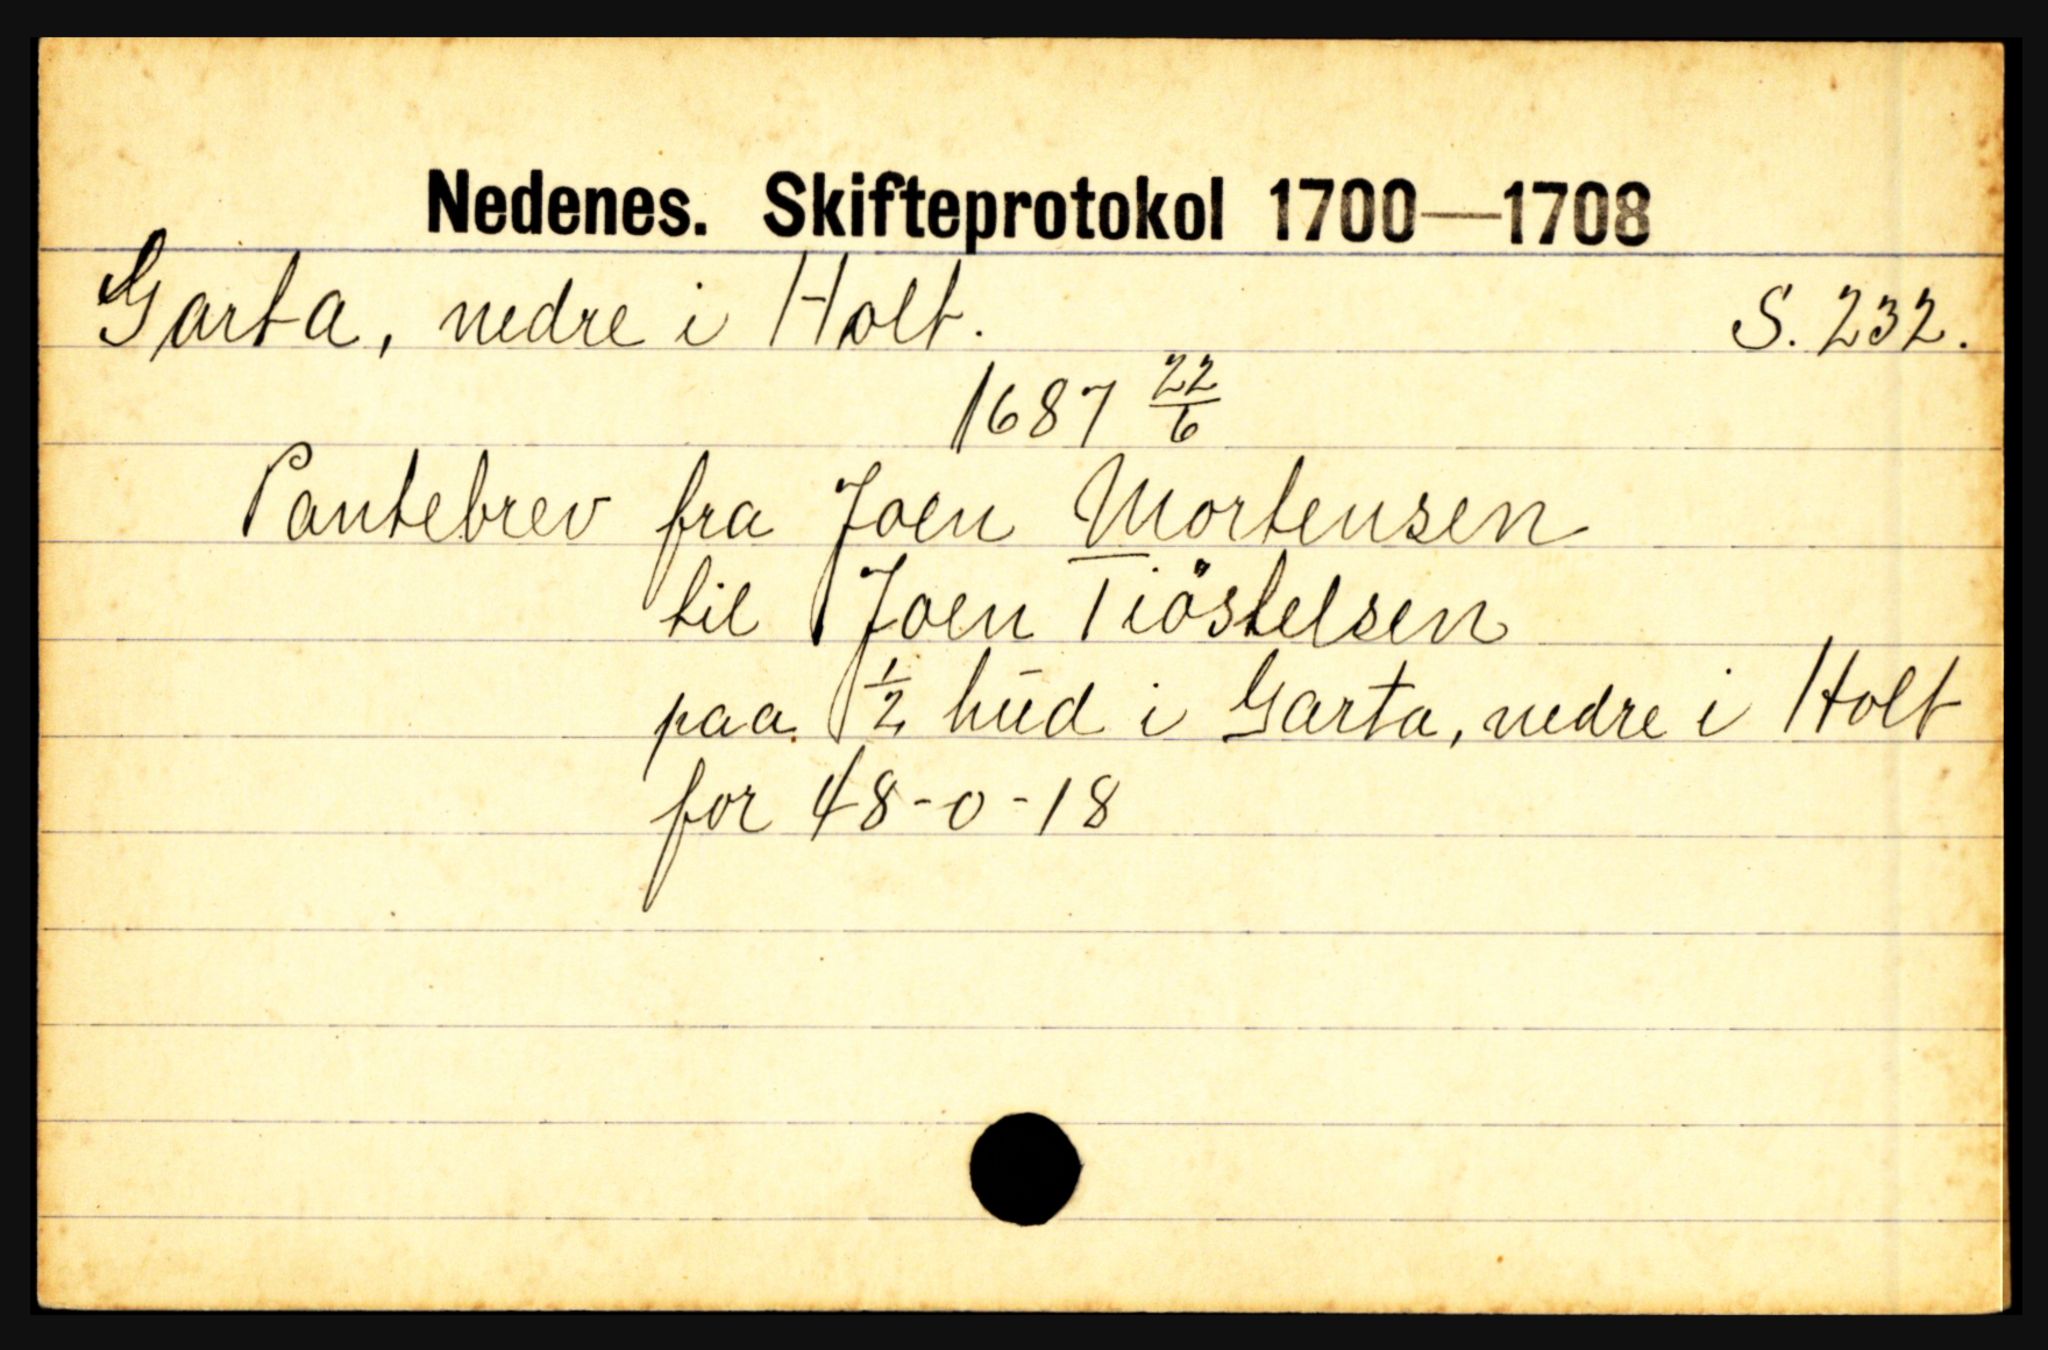 Nedenes. Skifteprotokol 1700—1708
Garta, nedre i Holt. S. 232.
1687 22/6
Pantebrev fra Joen Mortensen
til Joen Tiöstelsen
paa 1/2 hud i Garta, nedre i Holt
for 48-0-18